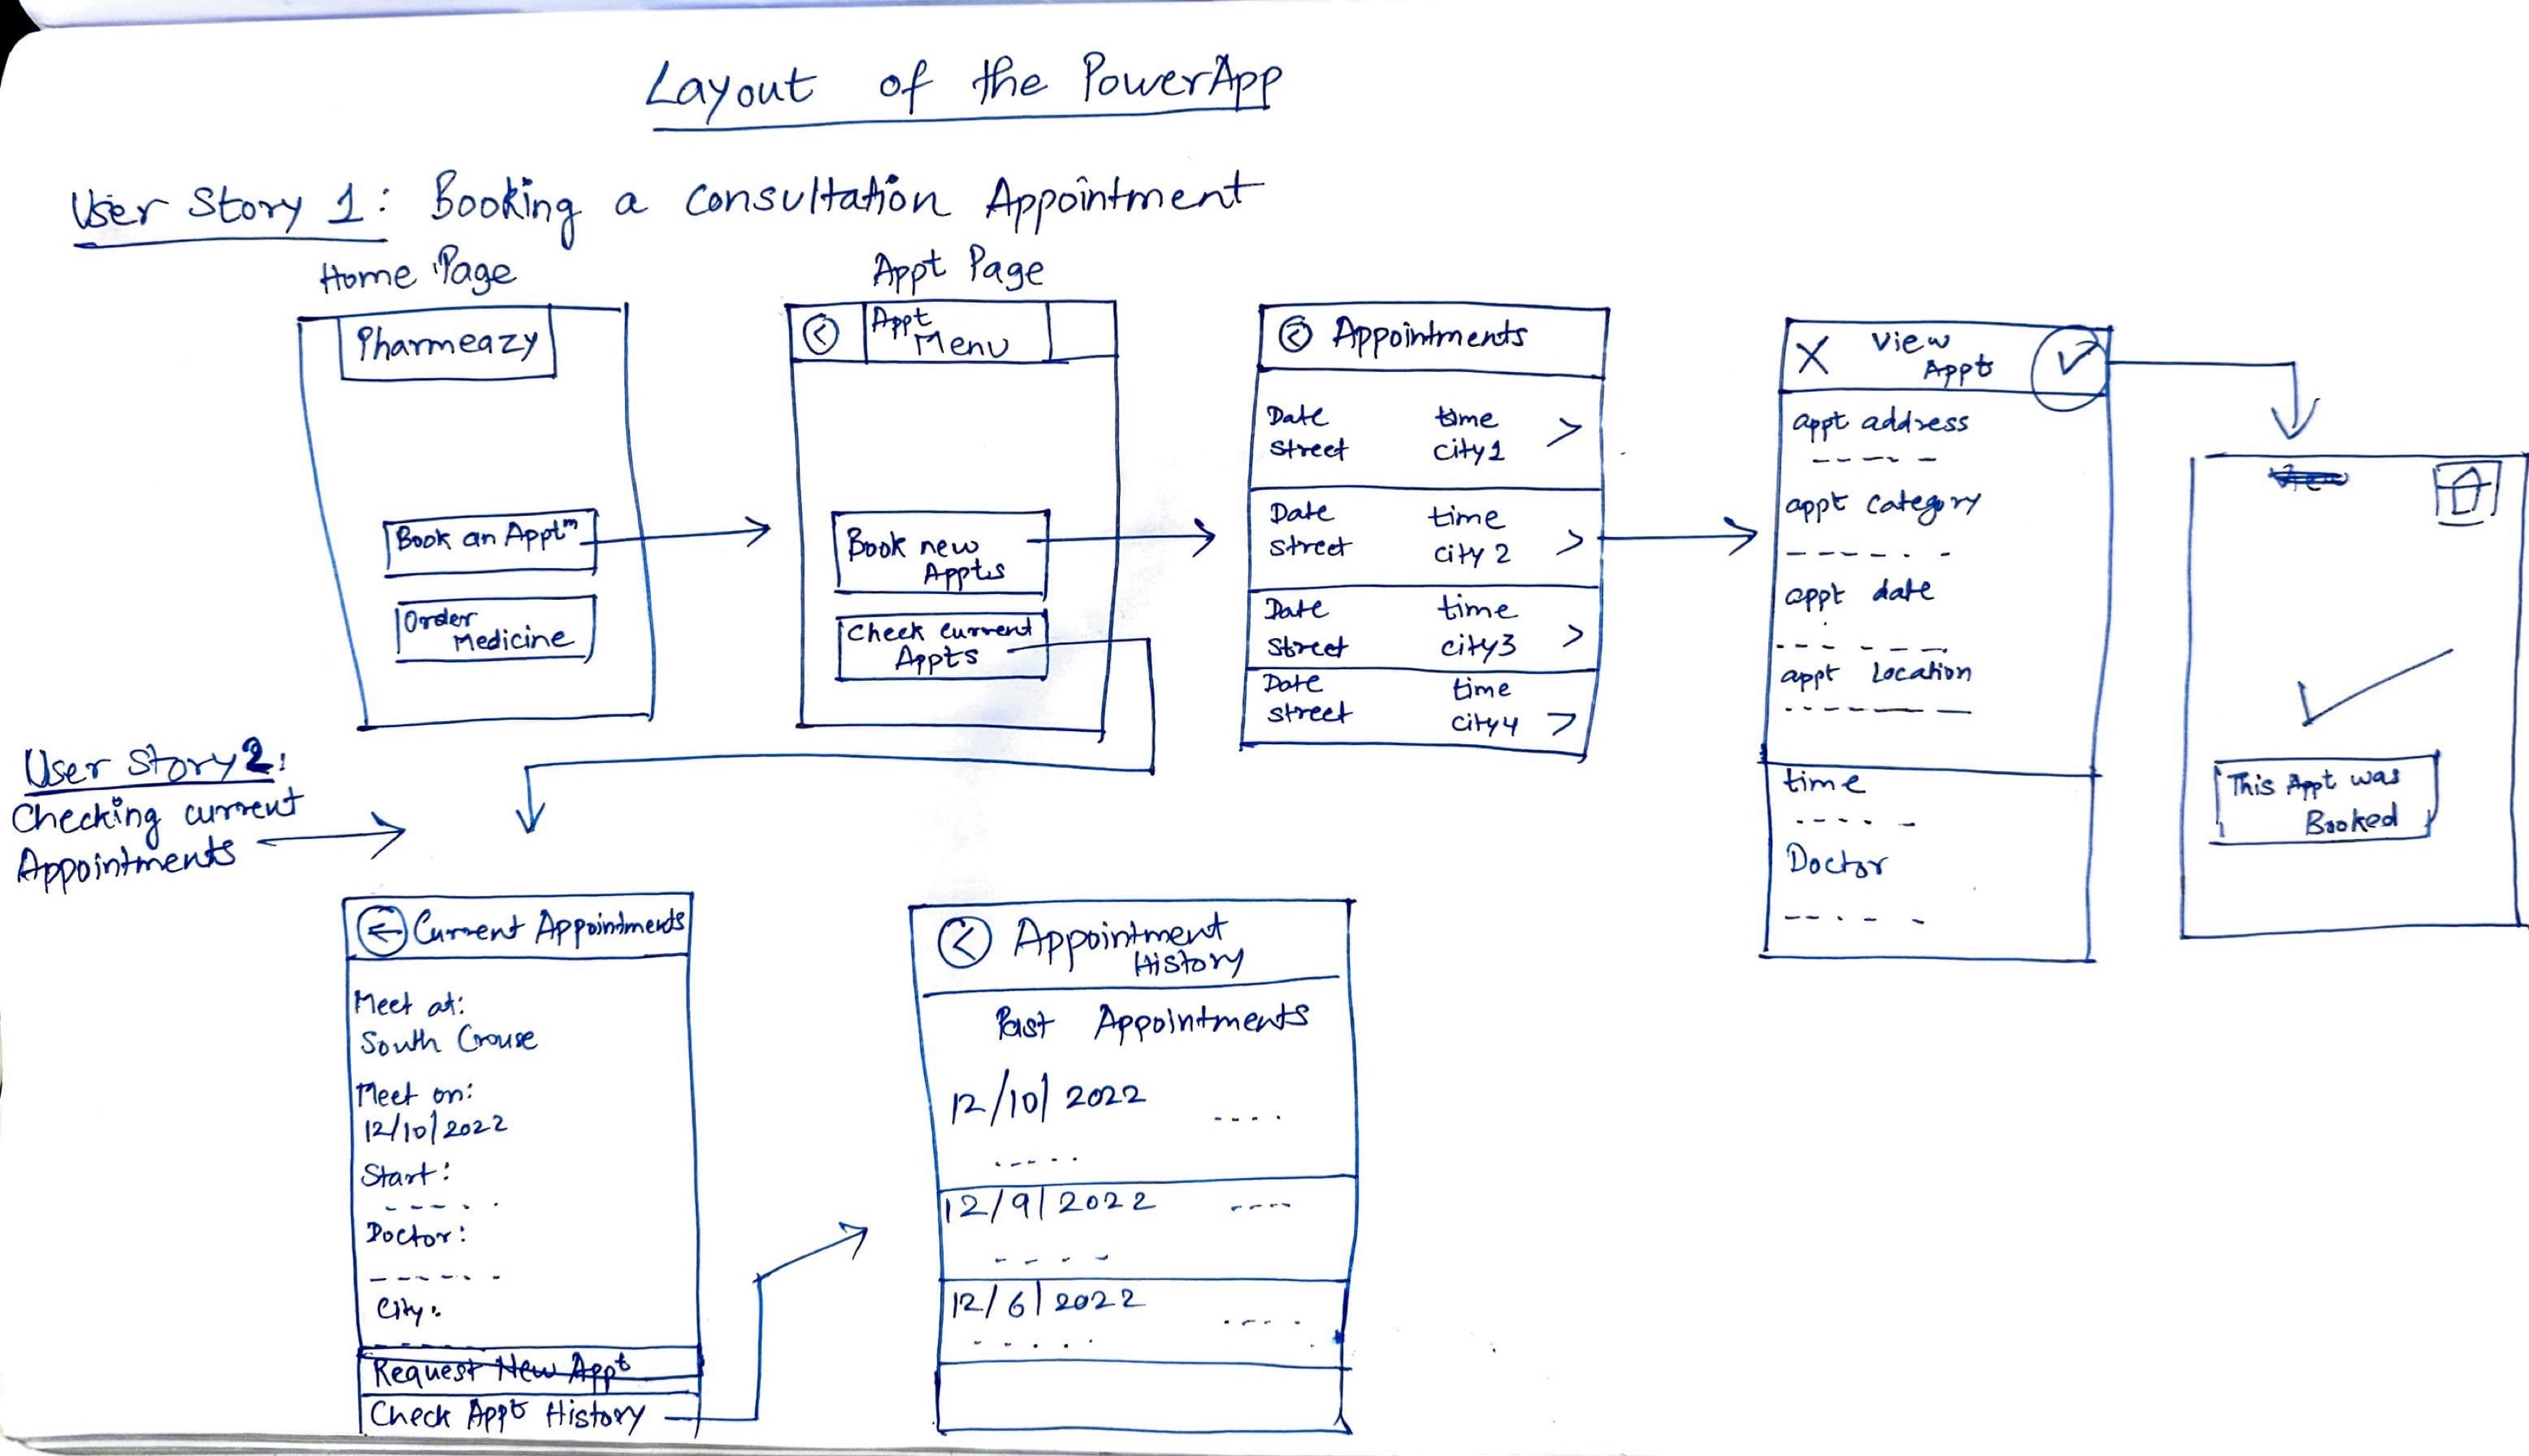 Layout of the PowerApp
User Story 1: Booking a Consultation Appointment
Home Page
Pharmeazy
Book an Apptm
Order
Medicine
Appt Page
Appt
Menu
Book new
Appts
Check current
Appts
Appointments
Date time
Street city1
Date time
Street city 2
Date time
Street city3
Date time
street city4
View
Appt
appt address
appt category
appt date
appt Location
time
Doctor
This Appt was
Booked
User Story 2:
Checking current
Appointments
Current Appointments
Meet at:
South Crouse
Meet on:
12/10/2022
Start:
Doctor:
City:
Request New Appt
Check Appt History
Appointment
History
Past Appointments
12/10/2022
12/9/2022
12/6/2022